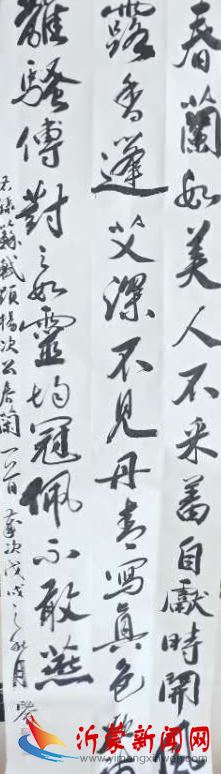 春蘭如美人不采羞自獻時聞
露香蓬艾深不見丹青寫真色
離騷傳對之如靈均冠佩不敢燕
右録蘇軾題楊次公春蘭一首 歲次戊戌之秋月
沂蒙新闻网
www.yimengxinwen.com